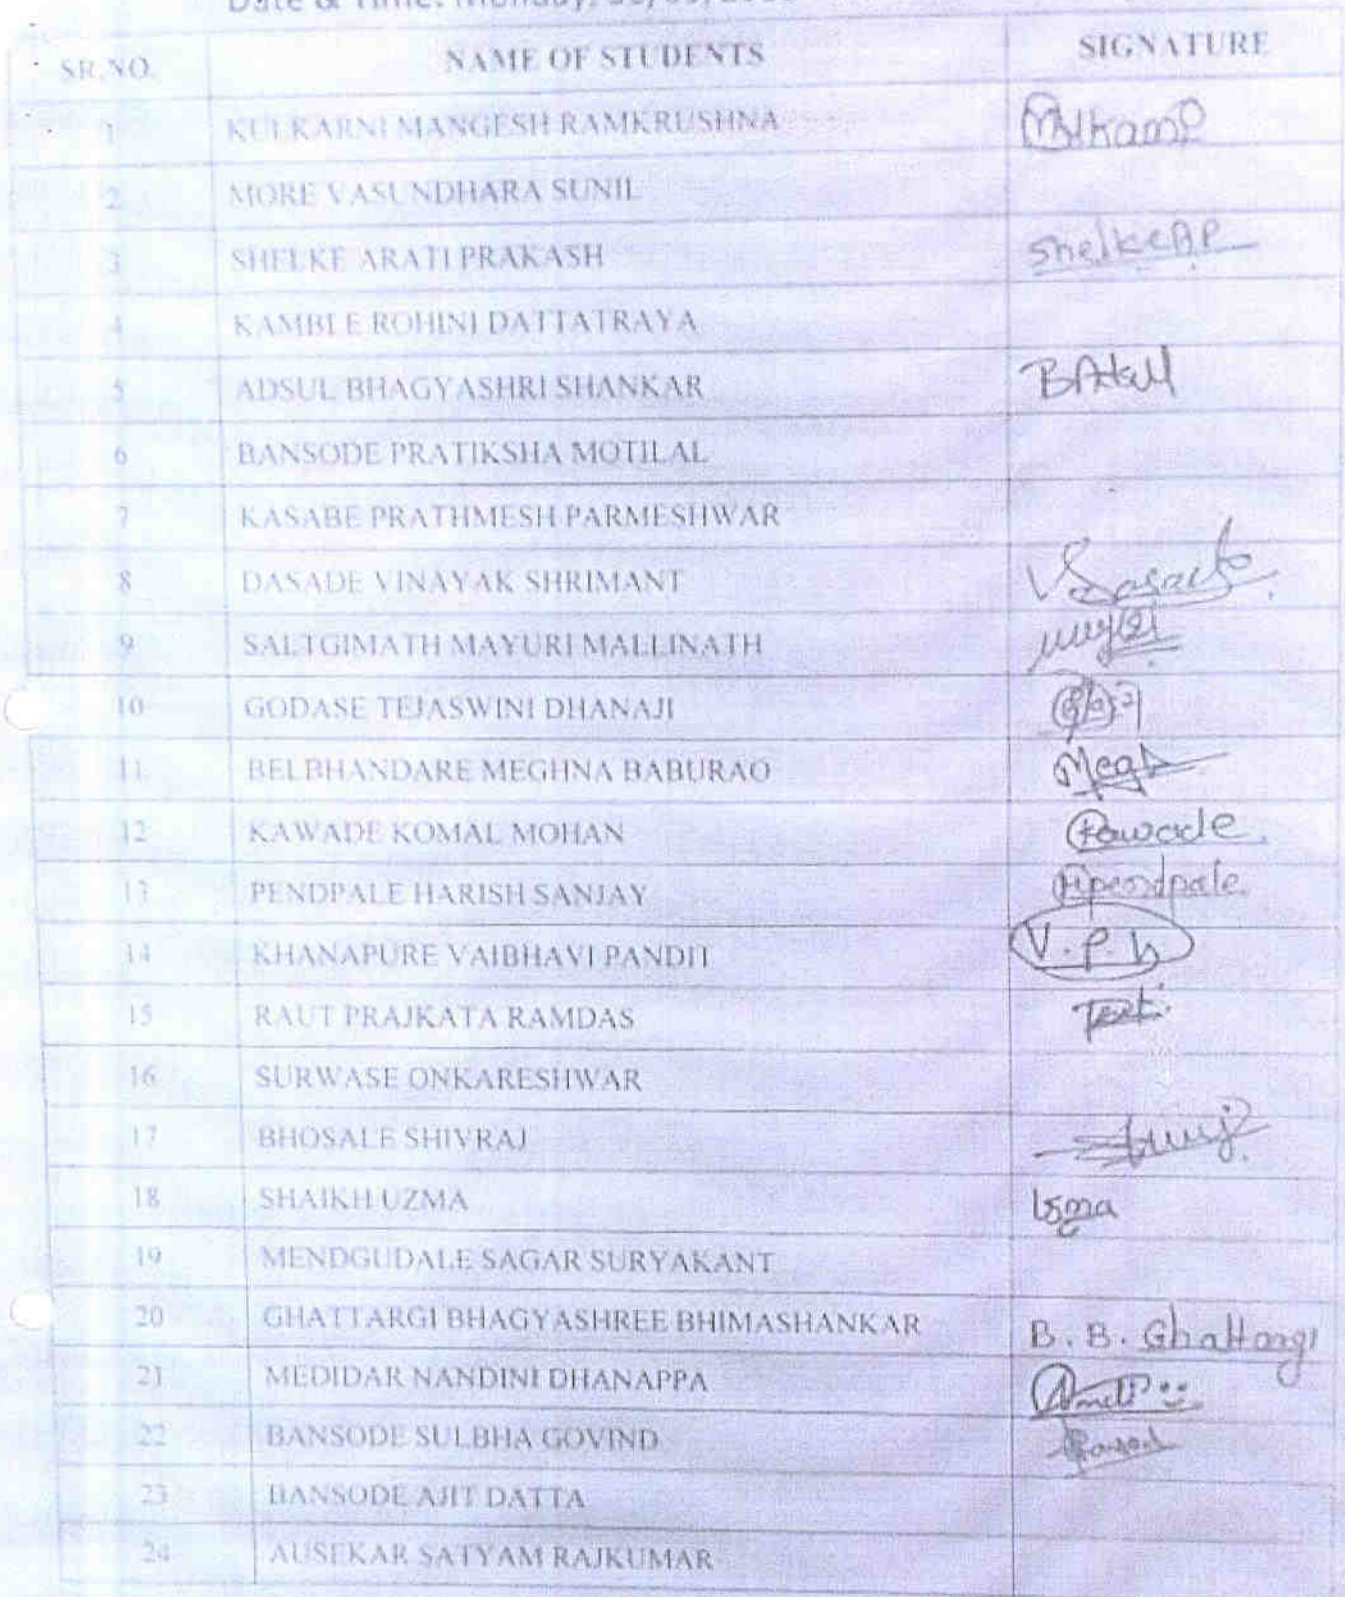 Date & Time: Monday,
SR.NO. NAME OF STUDENTS SIGNATURE
1 KULKARNI MANGESH RAMKRUSHNA
2 MORE VASUNDHARA SUNIL
3 SHELKE ARATI PRAKASH ShelkeAP
4 KAMBLE ROHINI DATTATRAYA
5 ADSUL BHAGYASHRI SHANKAR
6 BANSODE PRATIKSHA MOTILAL
7 KASABE PRATHMESH PARMESHWAR
8 DASADE VINAYAK SHRIMANT
9 SALIGIMATH MAYURI MALLINATH
10 GODASE TEJASWINI DHANAJI
11 BELBHANDARE MEGHNA BABURAO
12 KAWADE KOMAL MOHAN Kawade
13 PENDPALE HARISH SANJAY Hpendpale
14 KHANAPURE VAIBHAVI PANDIT V.P.K
15 RAUT PRAJKATA RAMDAS
16 SURWASE ONKARESHWAR
17 BHOSALE SHIVRAJ
18 SHAIKH UZMA
19 MENDGUDALE SAGAR SURYAKANT
20 GHATTARGI BHAGYASHREE BHIMASHANKAR B.B. Ghattargi
21 MEDIDAR NANDINI DHANAPPA
22 BANSODE SULBHA GOVIND
23 BANSODE AJIT DATTA
24 AUSEKAR SATYAM RAJKUMAR